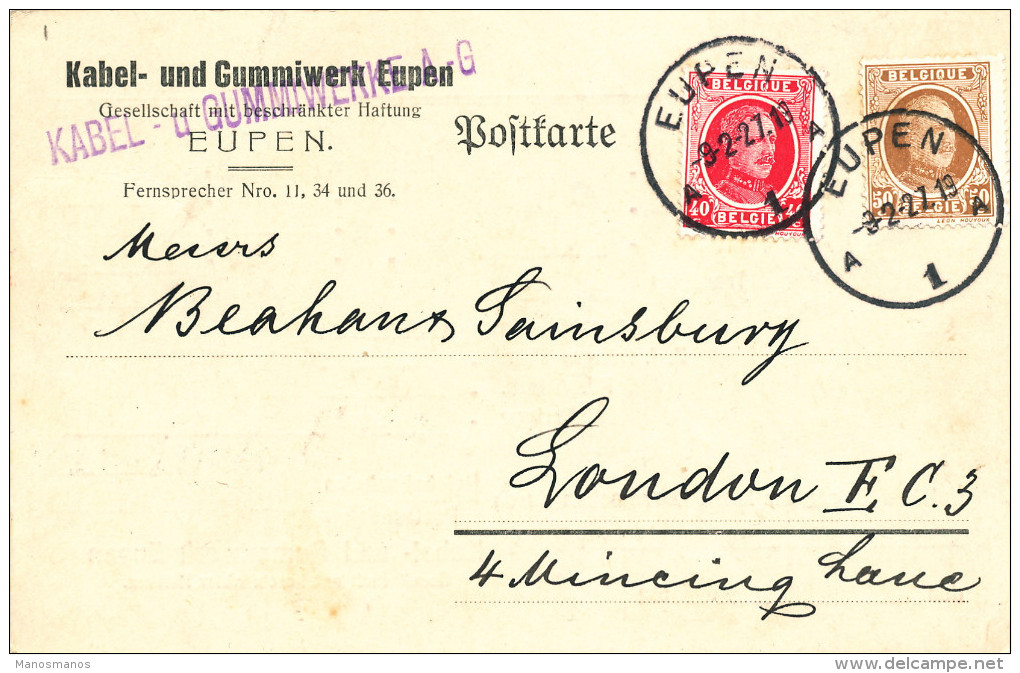 Kabel- und Gummiwerk Eupen
Gesellschaft mit beschränkter Haftung
EUPEN.
Fernsprecher Nro. 11, 34 und 36.
KABEL - u GUMMIWERKE A-G
Postkarte
BELGIQUE
40
BELGIË
HOUYOUX
EUPEN
-9-2-27.19
A A
1
BELGIQUE
50 50
BELGIË
LÉON HOUYOUX
EUPEN
-9-2-27.19
A A
1
Messrs
Sainsbury
London E.C.3
4 Mincing Lane
Manosmanos
www.delcampe.net